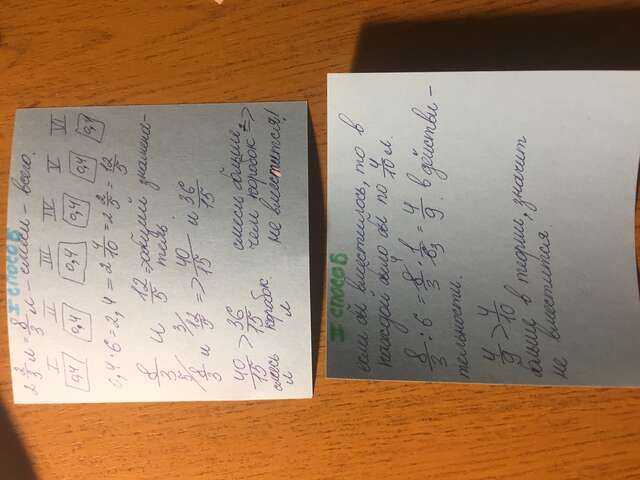 I СПОСОБ
2 2/3 л = 8/3 л - смеси - всего.
I II III IV V VI
0,4 0,4 0,4 0,4 0,4 0,4
0,4 · 6 = 2,4 = 2 4/10 = 2 2/5 = 12/5
8/3 и 12/5 => общий знамена-
тель
5/ 8/3 и 3/ 12/5 => 40/15 и 36/15
40/15 > 36/15
смесь л коробок л
смеси больше,
чем коробок =>
не вместится!
II СПОСОБ
если бы вместилось, то в
каждой было бы по 4/10 л.
8/3 : 6 = 8/3 · 1/6 = 4/9 в действи-
тельности.
4/9 > 4/10
больше в теории, значит
не вместится.